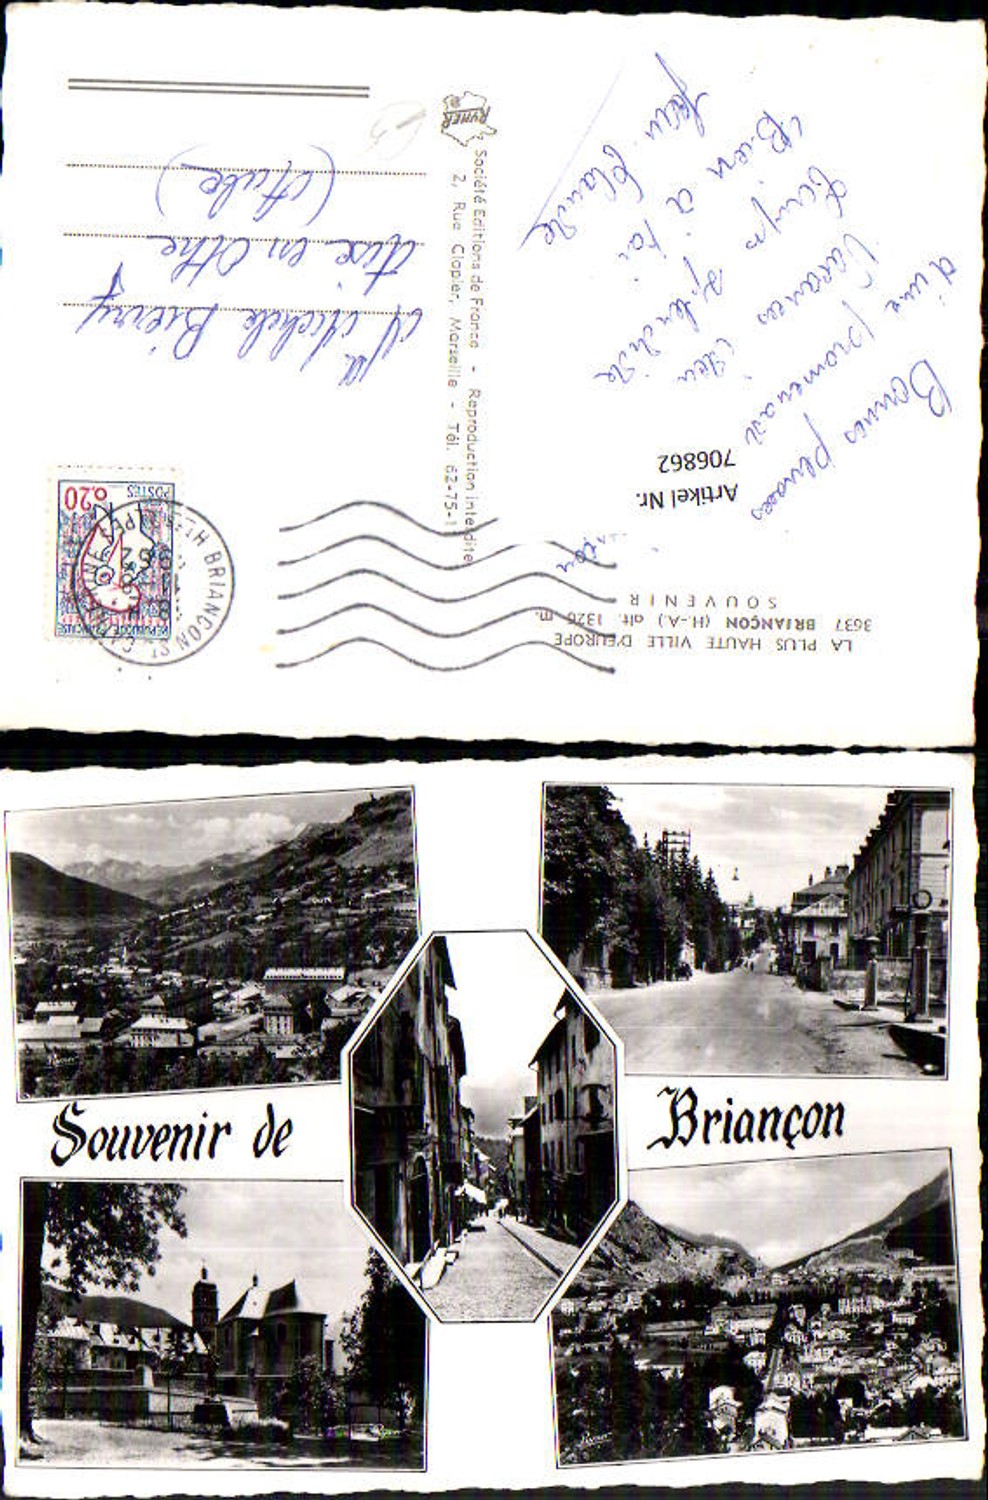 LA PLUS HAUTE VILLE D'EUROPE
3637 BRIANÇON (H.-A.) alt. 1326 m.
SOUVENIR
Artikel Nr.
706862
Bonnes pensées
d'une promenade
Vacances
temps splendide
Bien à toi
Jean Claude
RYNER
Société Editions de France - Reproduction interdite
2, Rue Clapier, Marseille - Tél. 62-75-1
0,20
POSTES
REPUBLIQUE FRANÇAISE
BRIANÇON
Michele Bierry
Aix en Othe
(Aube)
Souvenir de Briançon